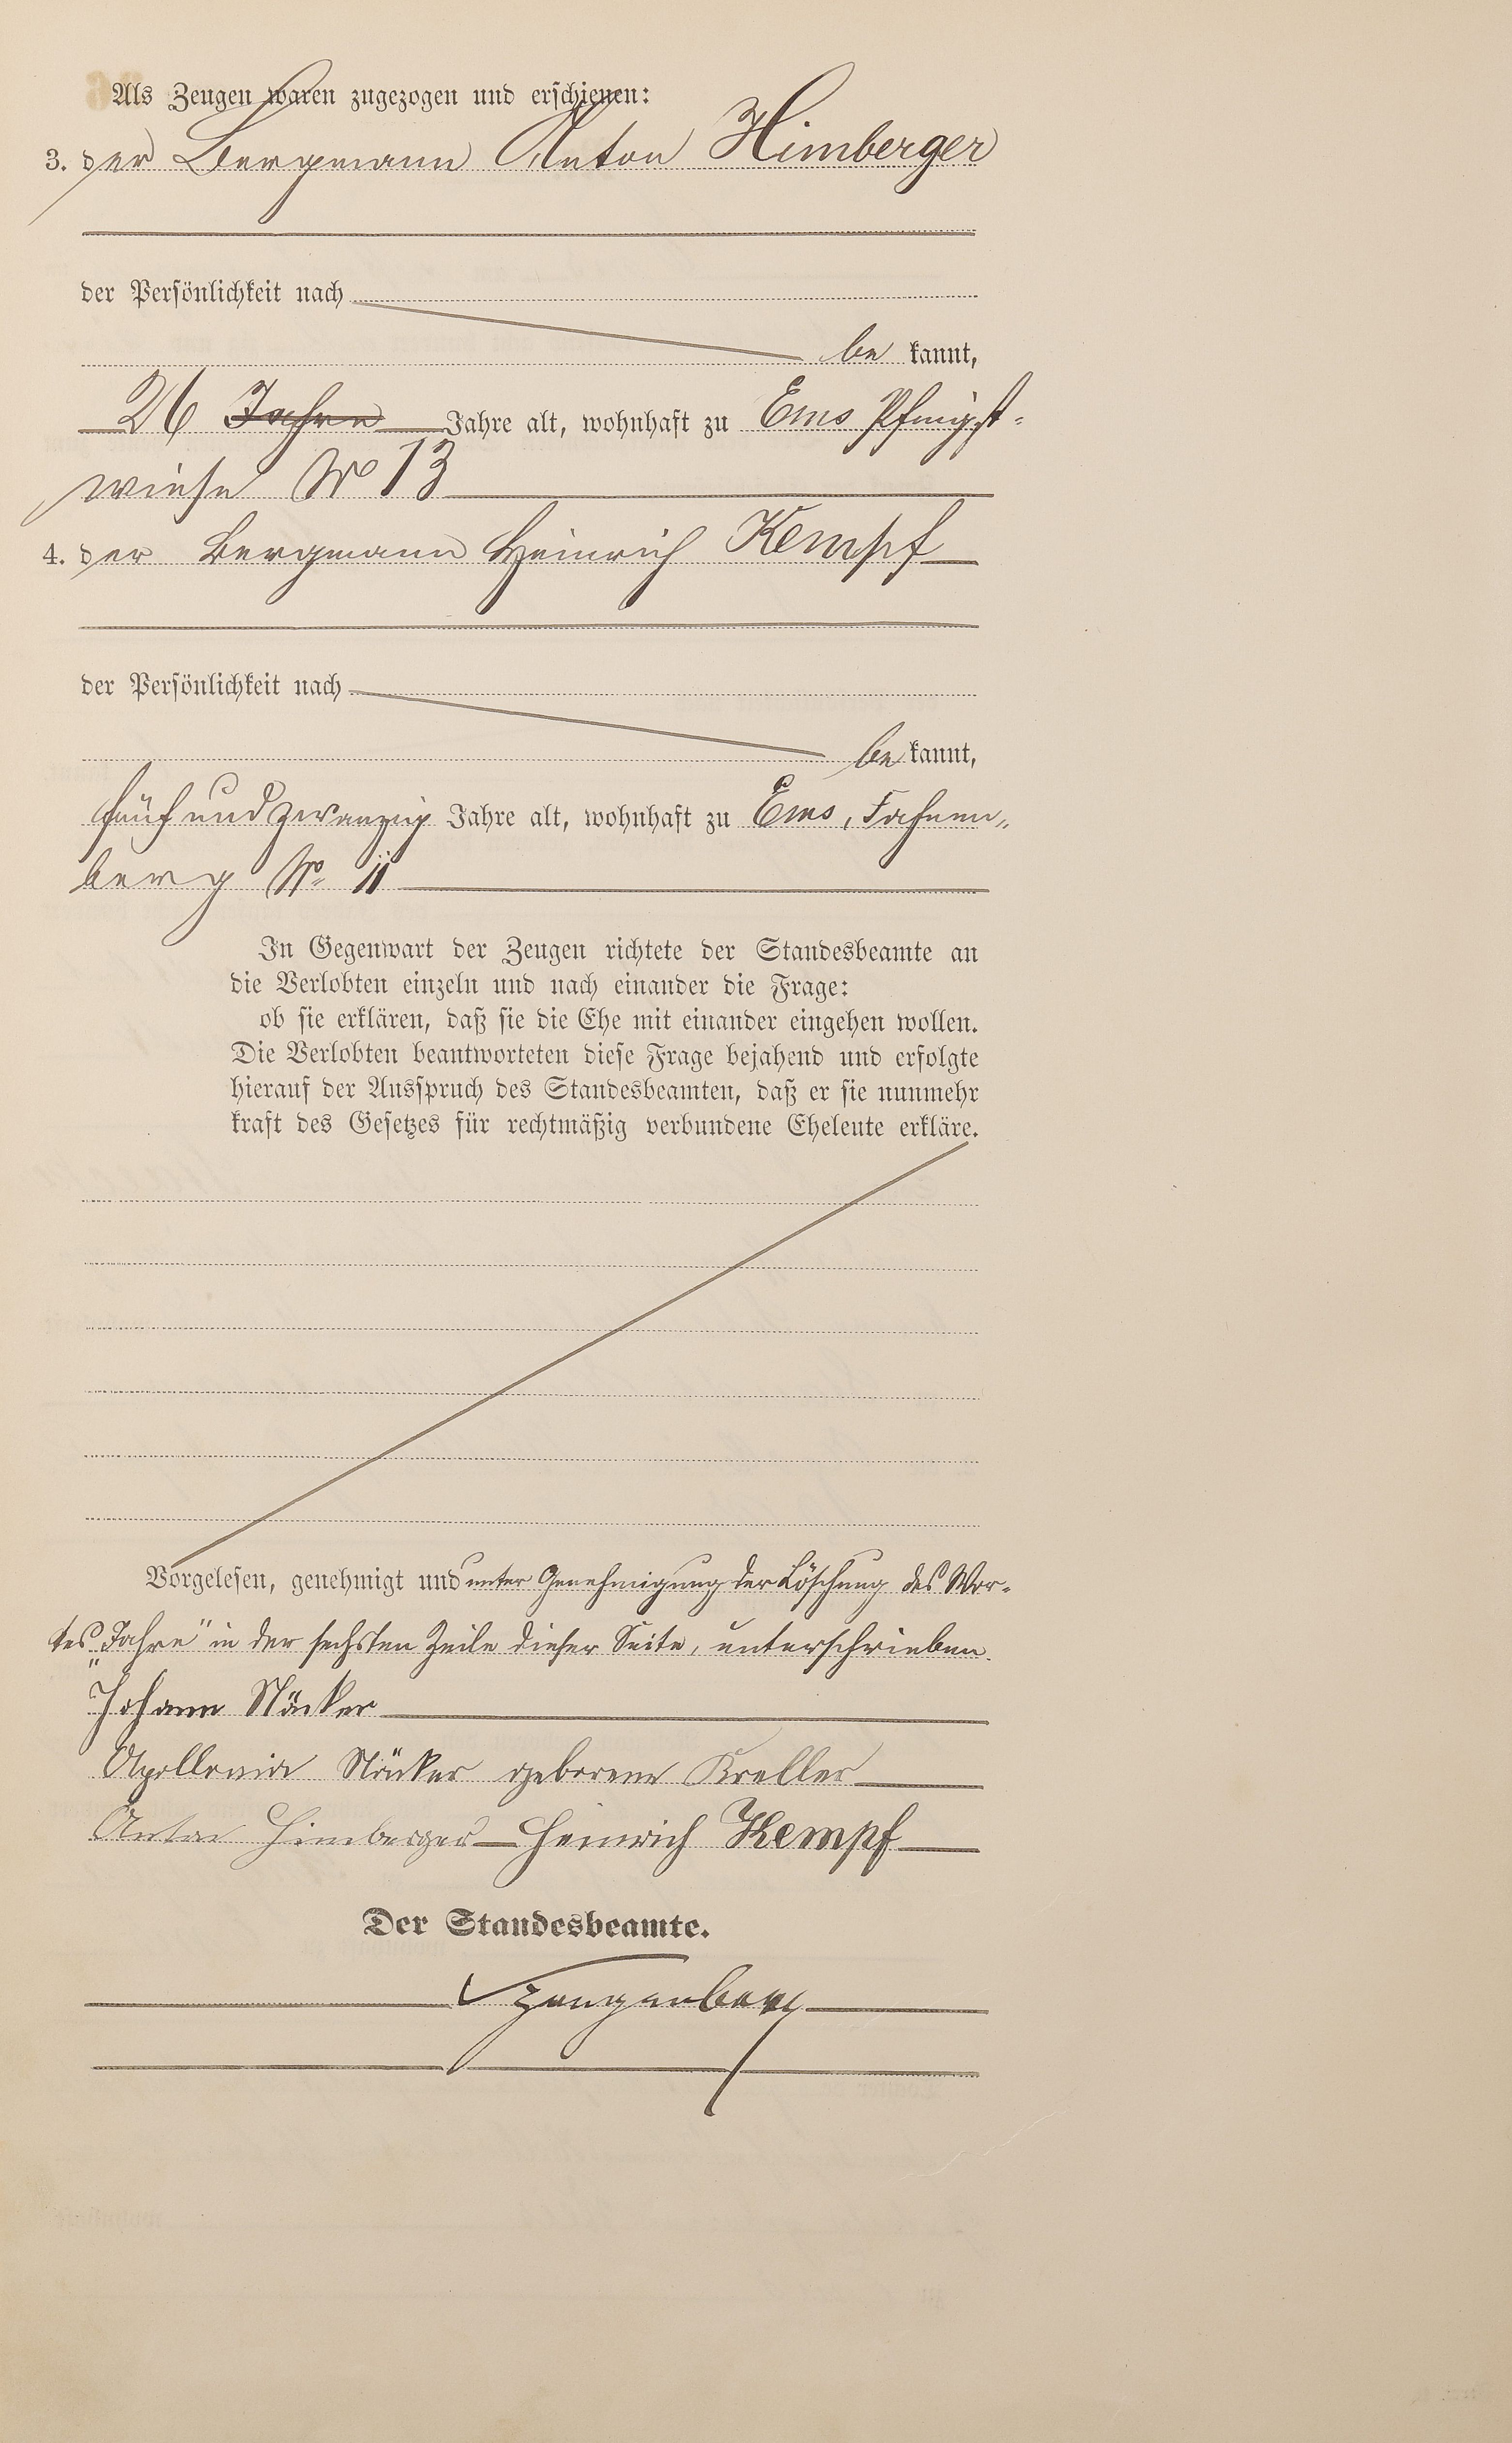 Als Zeugen waren zugezogen und erschienen:
3. der Bergmann Anton Himberger
der Persönlichkeit nach
be kannt,
26 Jahre Jahre alt, wohnhaft zu Ems Pfingst-
wiese No 13
4. der Bergmann Heinrich Kempf
der Persönlichkeit nach
be kannt,
fünf und zwanzig Jahre alt, wohnhaft zu Ems, Fahnen-
berg No 11
In Gegenwart der Zeugen richtete der Standesbeamte an
die Verlobten einzeln und nach einander die Frage:
ob sie erklären, daß sie die Ehe mit einander eingehen wollen.
Die Verlobten beantworteten diese Frage bejahend und erfolgte
hierauf der Ausspruch des Standesbeamten, daß er sie nunmehr
kraft des Gesetzes für rechtmäßig verbundene Eheleute erkläre.
Vorgelesen, genehmigt und unter Genehmigung der Löschung des Wor-
tes „Jahre" in der sechsten Zeile dieser Seite, unterschrieben.
Johann Näcker
Apollonia Näcker geborene Kreller
Anton Himberger Heinrich Kempf
Der Standesbeamte.